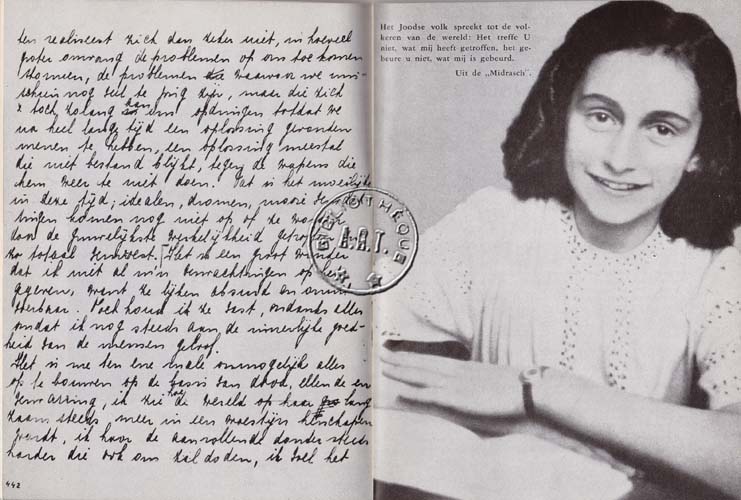 ten realiseert zich dan zeker niet, in hoeveel
groter omvang de problemen op ons toe komen
stormen, de problemen waarvoor we mis-
schien nog veel te jong zijn, maar die zich
toch zolang aan ons opdringen totdat we
na heel lange tijd een oplossing gevonden
menen te hebben, een oplossing meestal
die niet bestand blijkt, tegen de wapens die
hem weer te niet doen. Dat is het moeilijke
in deze tijd, idealen, dromen, mooie
komen nog niet op of ze worden
door de gruwelijkste werkelijkheid
zo totaal verwoest. Het is een groot wonder
dat ik niet al m'n verwachtingen op heb
gegeven, want ze lijken absurd en onuit-
voerbaar. Toch houd ik ze vast, ondanks alles
omdat ik nog steeds aan de innerlijke goed-
heid van de mensen geloof.
Het is me ten ene male onmogelijk alles
op te bouwen op de basis van dood, ellende en
verwarring, ik zie hoe de wereld op haar lang
zaam steeds meer in een woestijn herschapen
wordt, ik hoor de aanrollende donder steeds
harder die ook ons zal doden, ik voel het
442
Het Joodse volk spreekt tot de vol-
keren van de wereld: Het treffe U
niet, wat mij heeft getroffen, het ge-
beure u niet, wat mij is gebeurd.
Uit de „Midrasch".
BIBLIOTHEQUE
A.R.T.